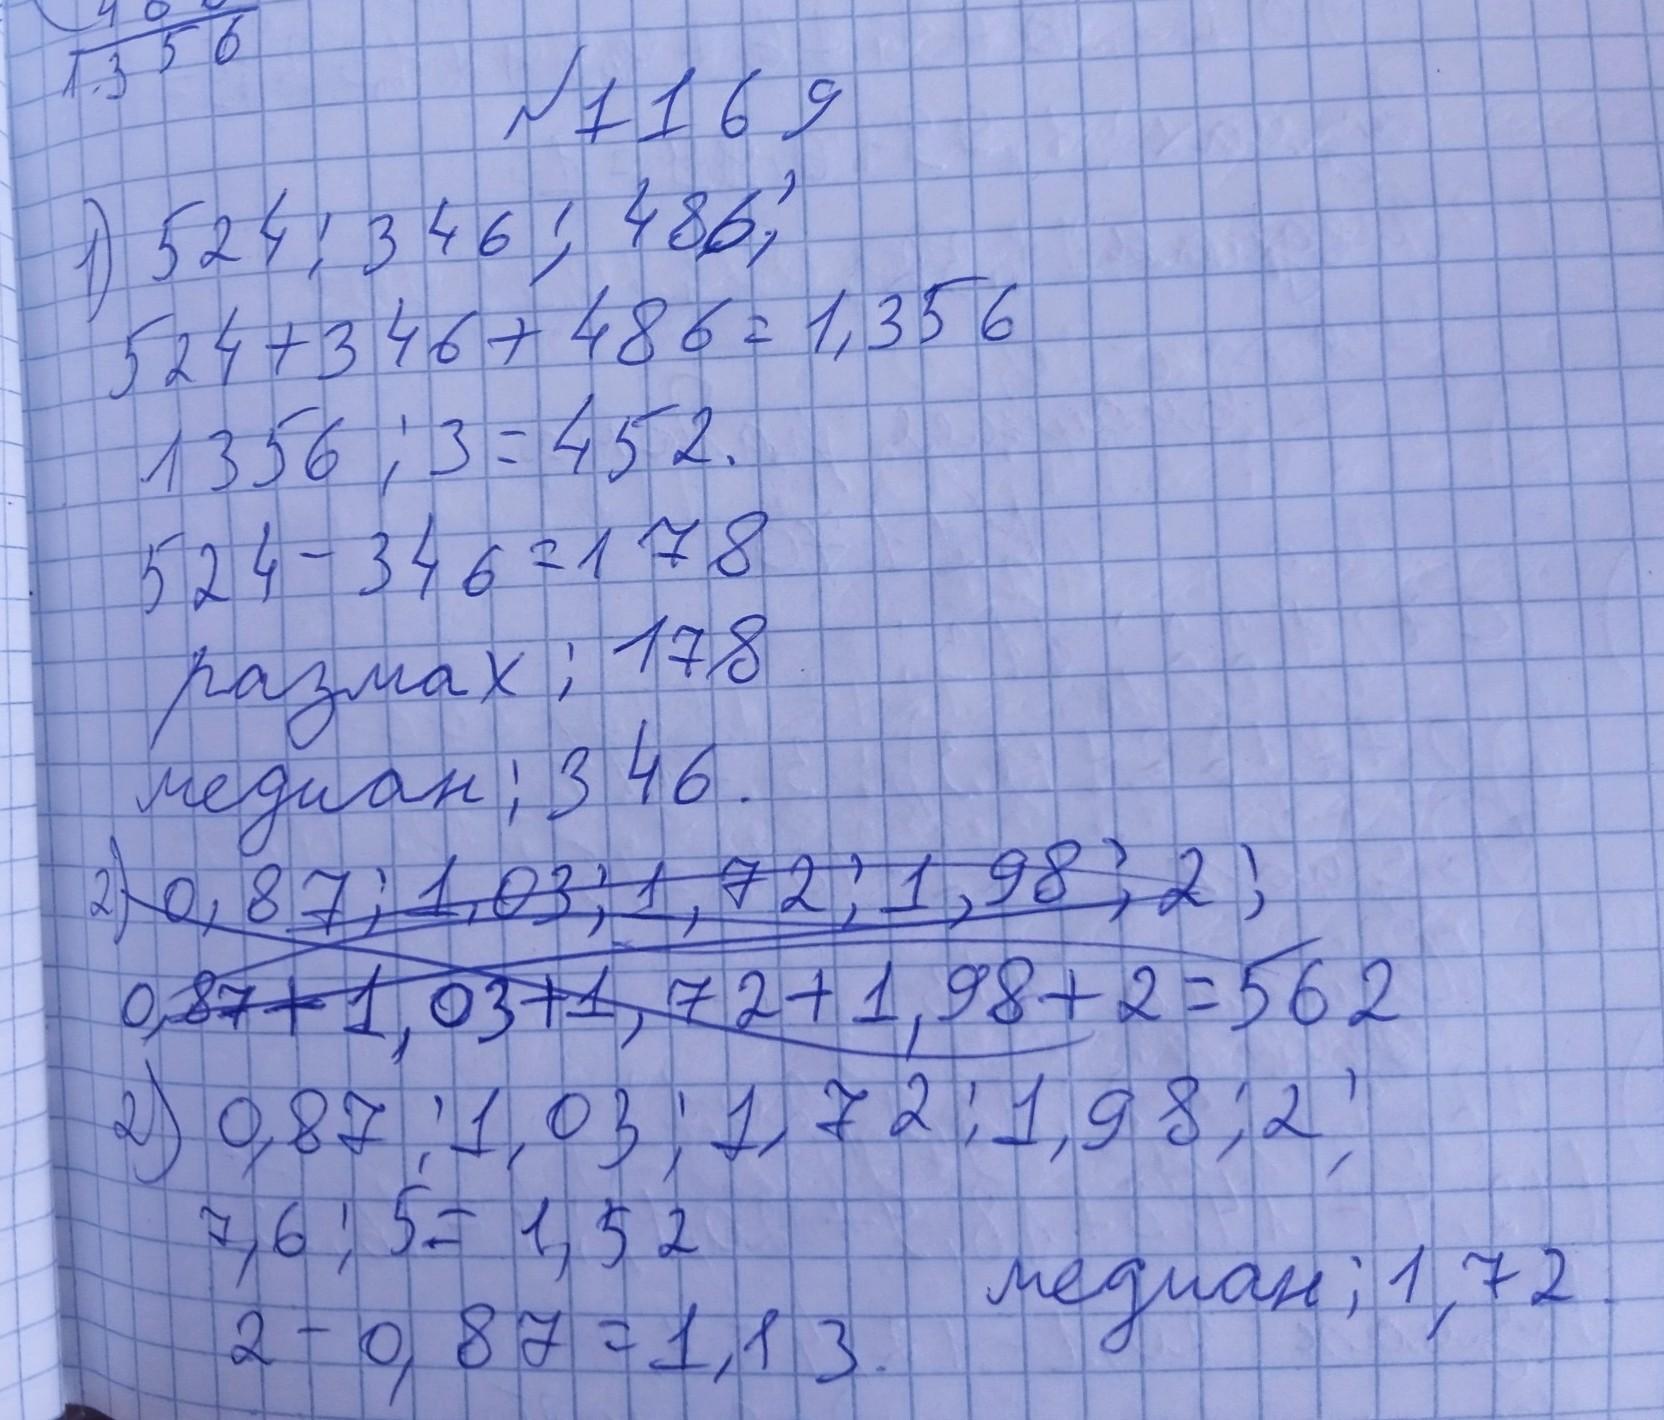 1356
№1169
1) 524; 346; 486;
524+346+486=1,356
1356:3=452.
524-346=178
размах: 178
медиан: 346.
2) 0,87; 1,03; 1,72; 1,98; 2;
0,87+1,03+1,72+1,98+2=562
2) 0,87; 1,03; 1,72; 1,98; 2;
7,6:5=1,52
медиан: 1,72.
2-0,87=1,13.